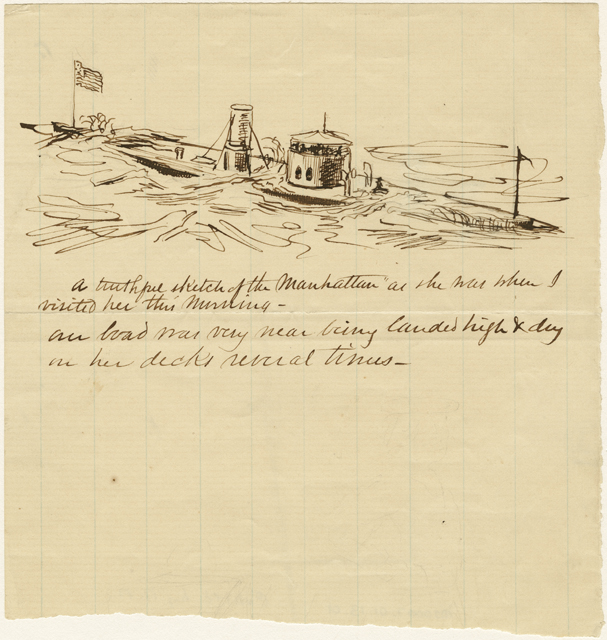 a truthful sketch of the Manhattan" as she was when I
visited her this Morning -
our boat was very near being landed high & dry
on her decks several times -